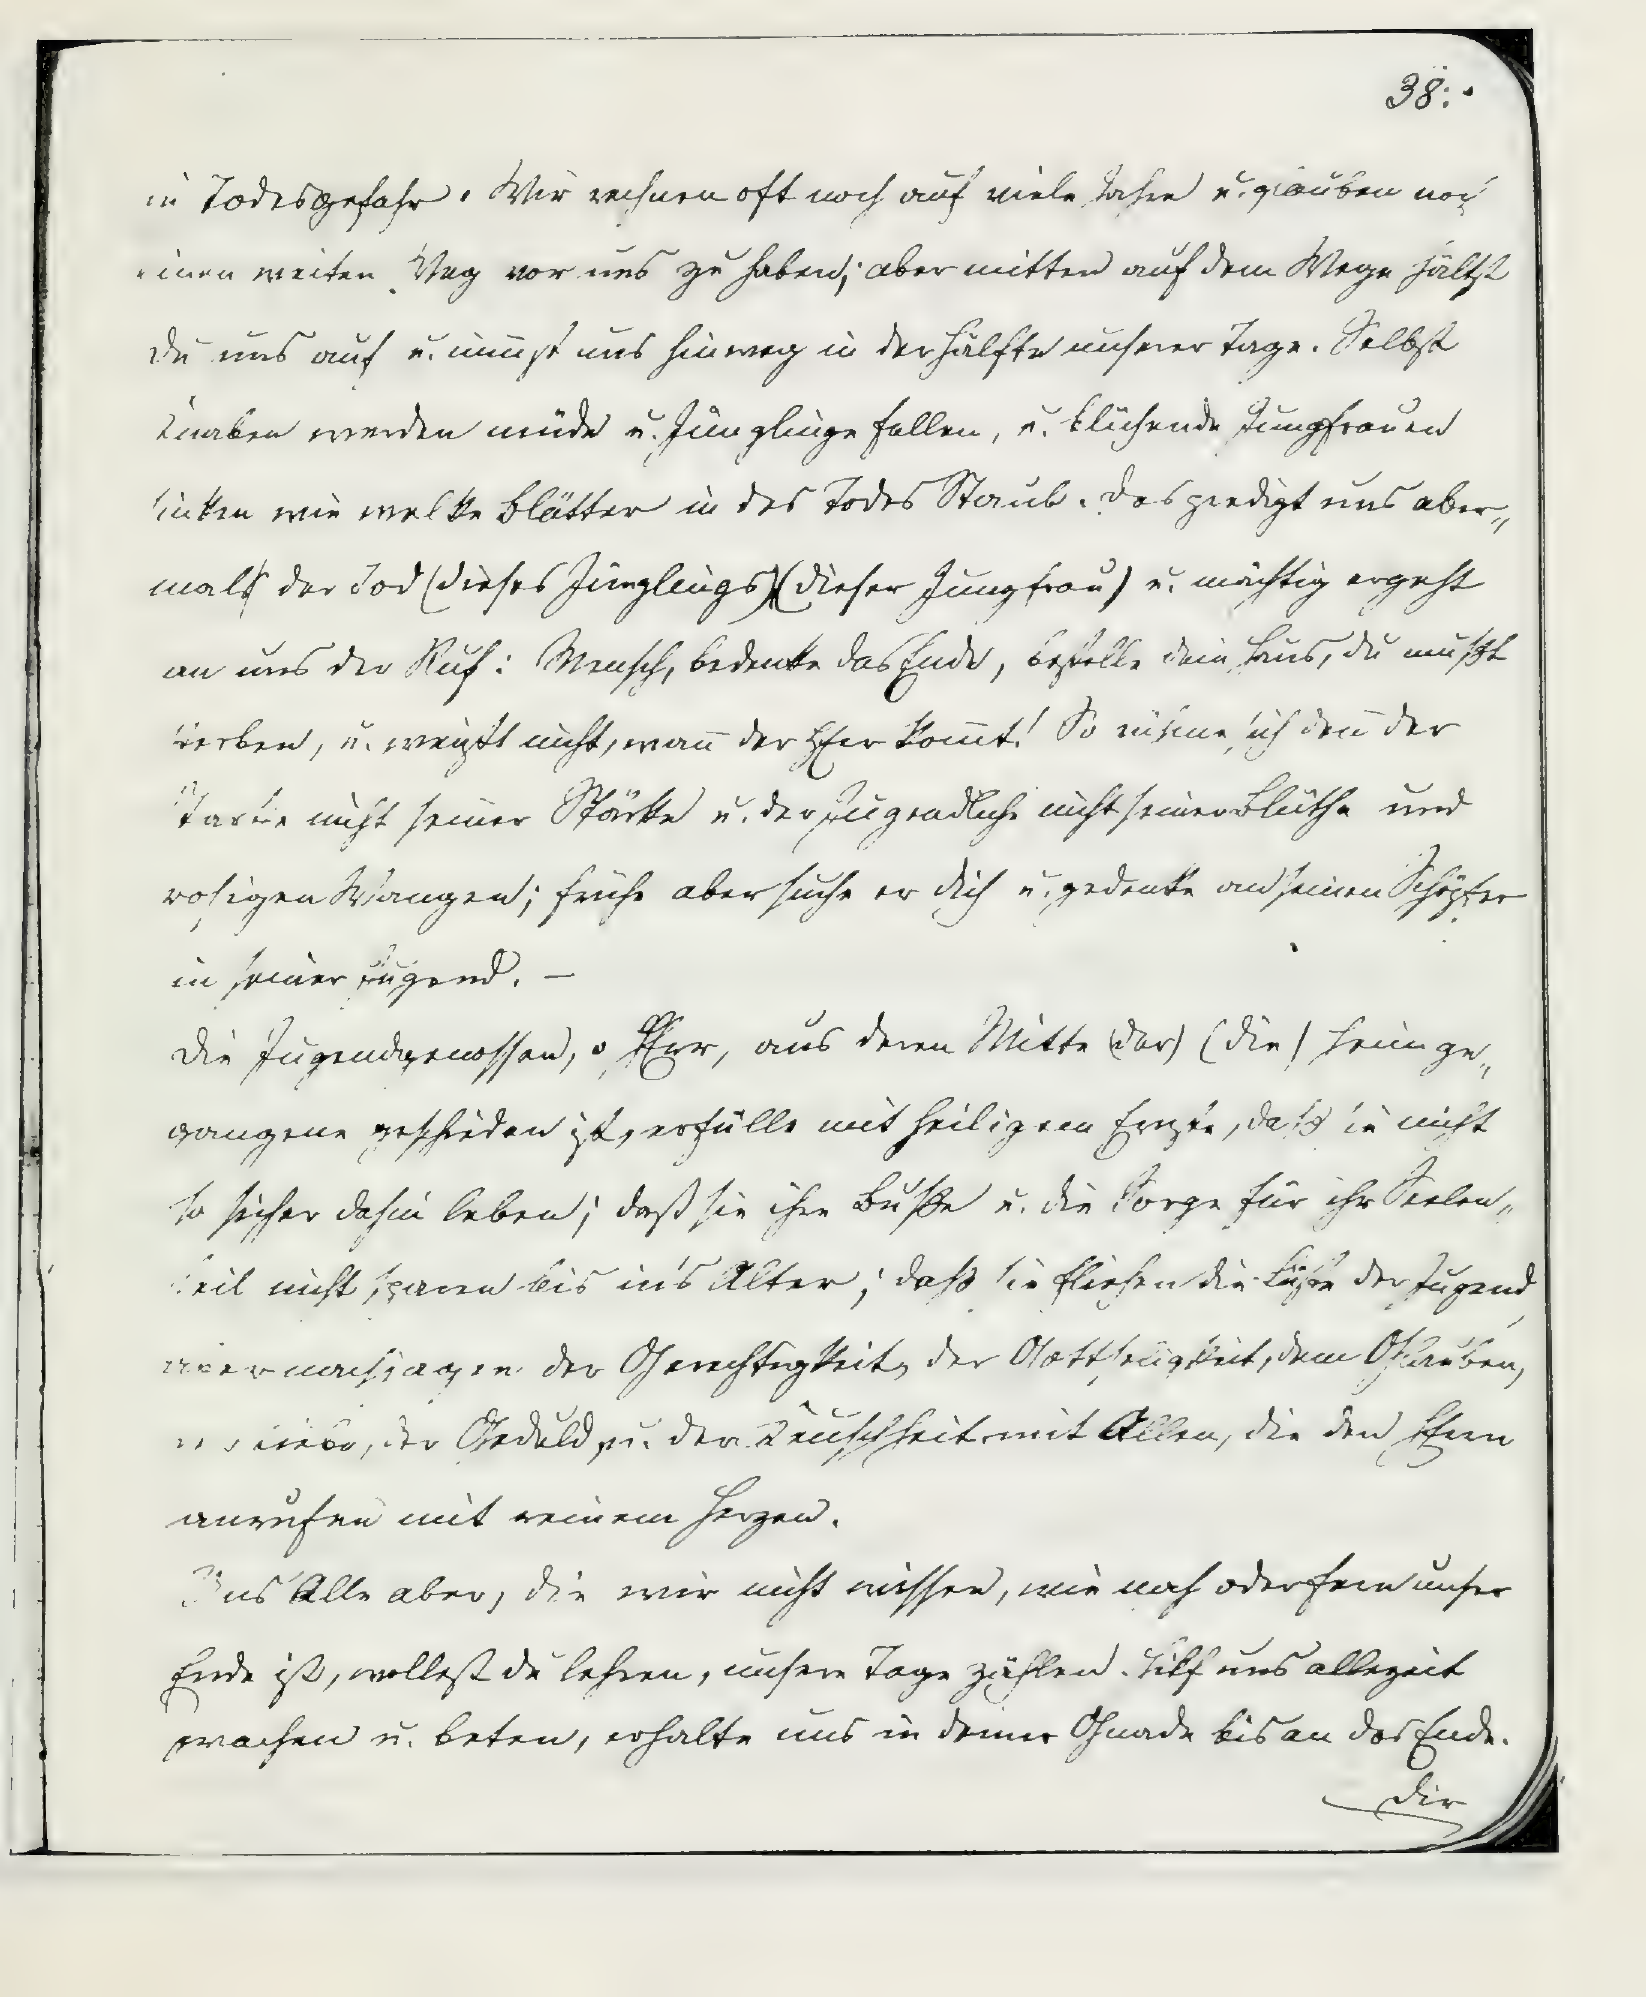 38.
in Todesgefahr. Wir rechnen oft noch auf viele Jahre u. glauben noch
einen weiten Weg vor uns zu haben; aber mitten auf dem Wege hältst
du uns auf u. nim̄st uns hinweg in der Hälfte unserer Tage. Selbst
Knaben werden müde u. Jünglinge fallen, u. blühende Jungfrauen
sinken wie welke Blätter in des Todes Staub. Das predigt uns aber„
mals der Tod (dieses Jünglings) (dieser Jungfrau) u. mächtig ergeht
an uns der Ruf: Mensch, bedenke das Ende, bestelle dein Haus, du mußt
sterben, u. weißt nicht, wan̄ der Herr kom̄t! So rühme sich den̄ der
Starke nicht seiner Stärke u. der Jugendliche nicht seiner Blüthe und
rosigen Wangen; frühe aber suche er dich u. gedenke an seinen Schöpfer
in seiner Jugend. —
Die Jugendgenossen, o Herr, aus deren Mitte (der) (die) Heimge„
gangene geschieden ist, erfülle mit heiligem Ernste, daß sie nicht
so sicher dahin leben; daß sie ihre Buße u. die Sorge für ihr Seelen„
heil nicht sparen bis in's Alter; daß sie fliehen die Lüste der Jugend,
aber nachjagen der Gerechtigkeit, der Gottseligkeit, dem Glauben,
der Liebe, der Geduld, u. der Keuschheit mit Allen, die den Herrn
anrufen mit reinem Herzen.
Uns Alle aber, die wir nicht wissen, wie nah oder fern unser
Ende ist, wollest du lehren, unsere Tage zählen. Hilf uns allezeit
wachen u. beten, erhalte uns in deiner Gnade bis an das Ende.
Dir